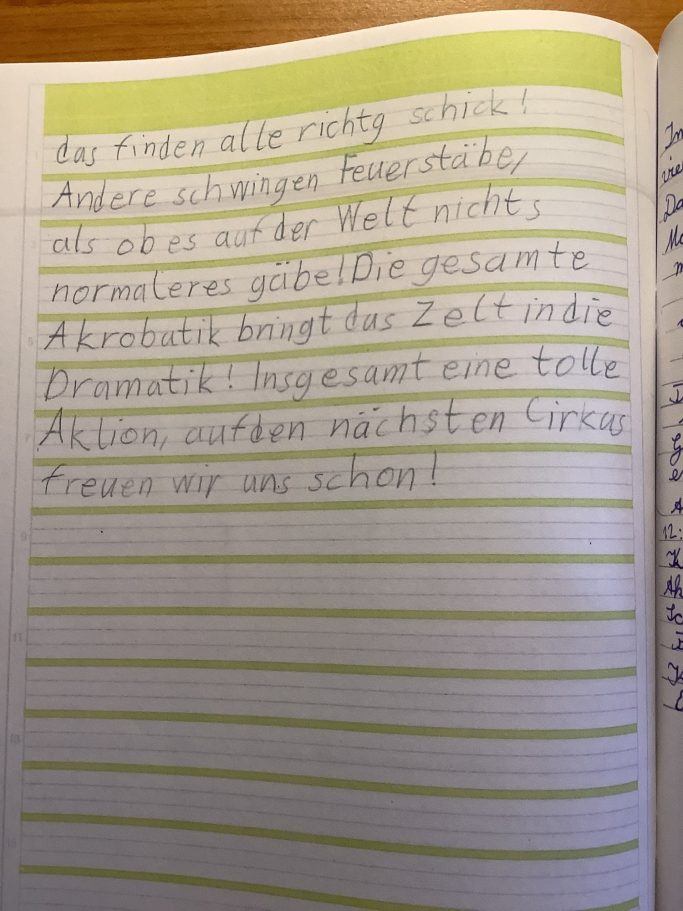 das finden alle richtg schick!
Andere schwingen Feuerstäbe,
als ob es auf der Welt nichts
normaleres gäbe! Die gesamte
Akrobatik bringt das Zelt in die
Dramatik! Insgesamt eine tolle
Aktion, auf den nächsten Cirkus
freuen wir uns schon!